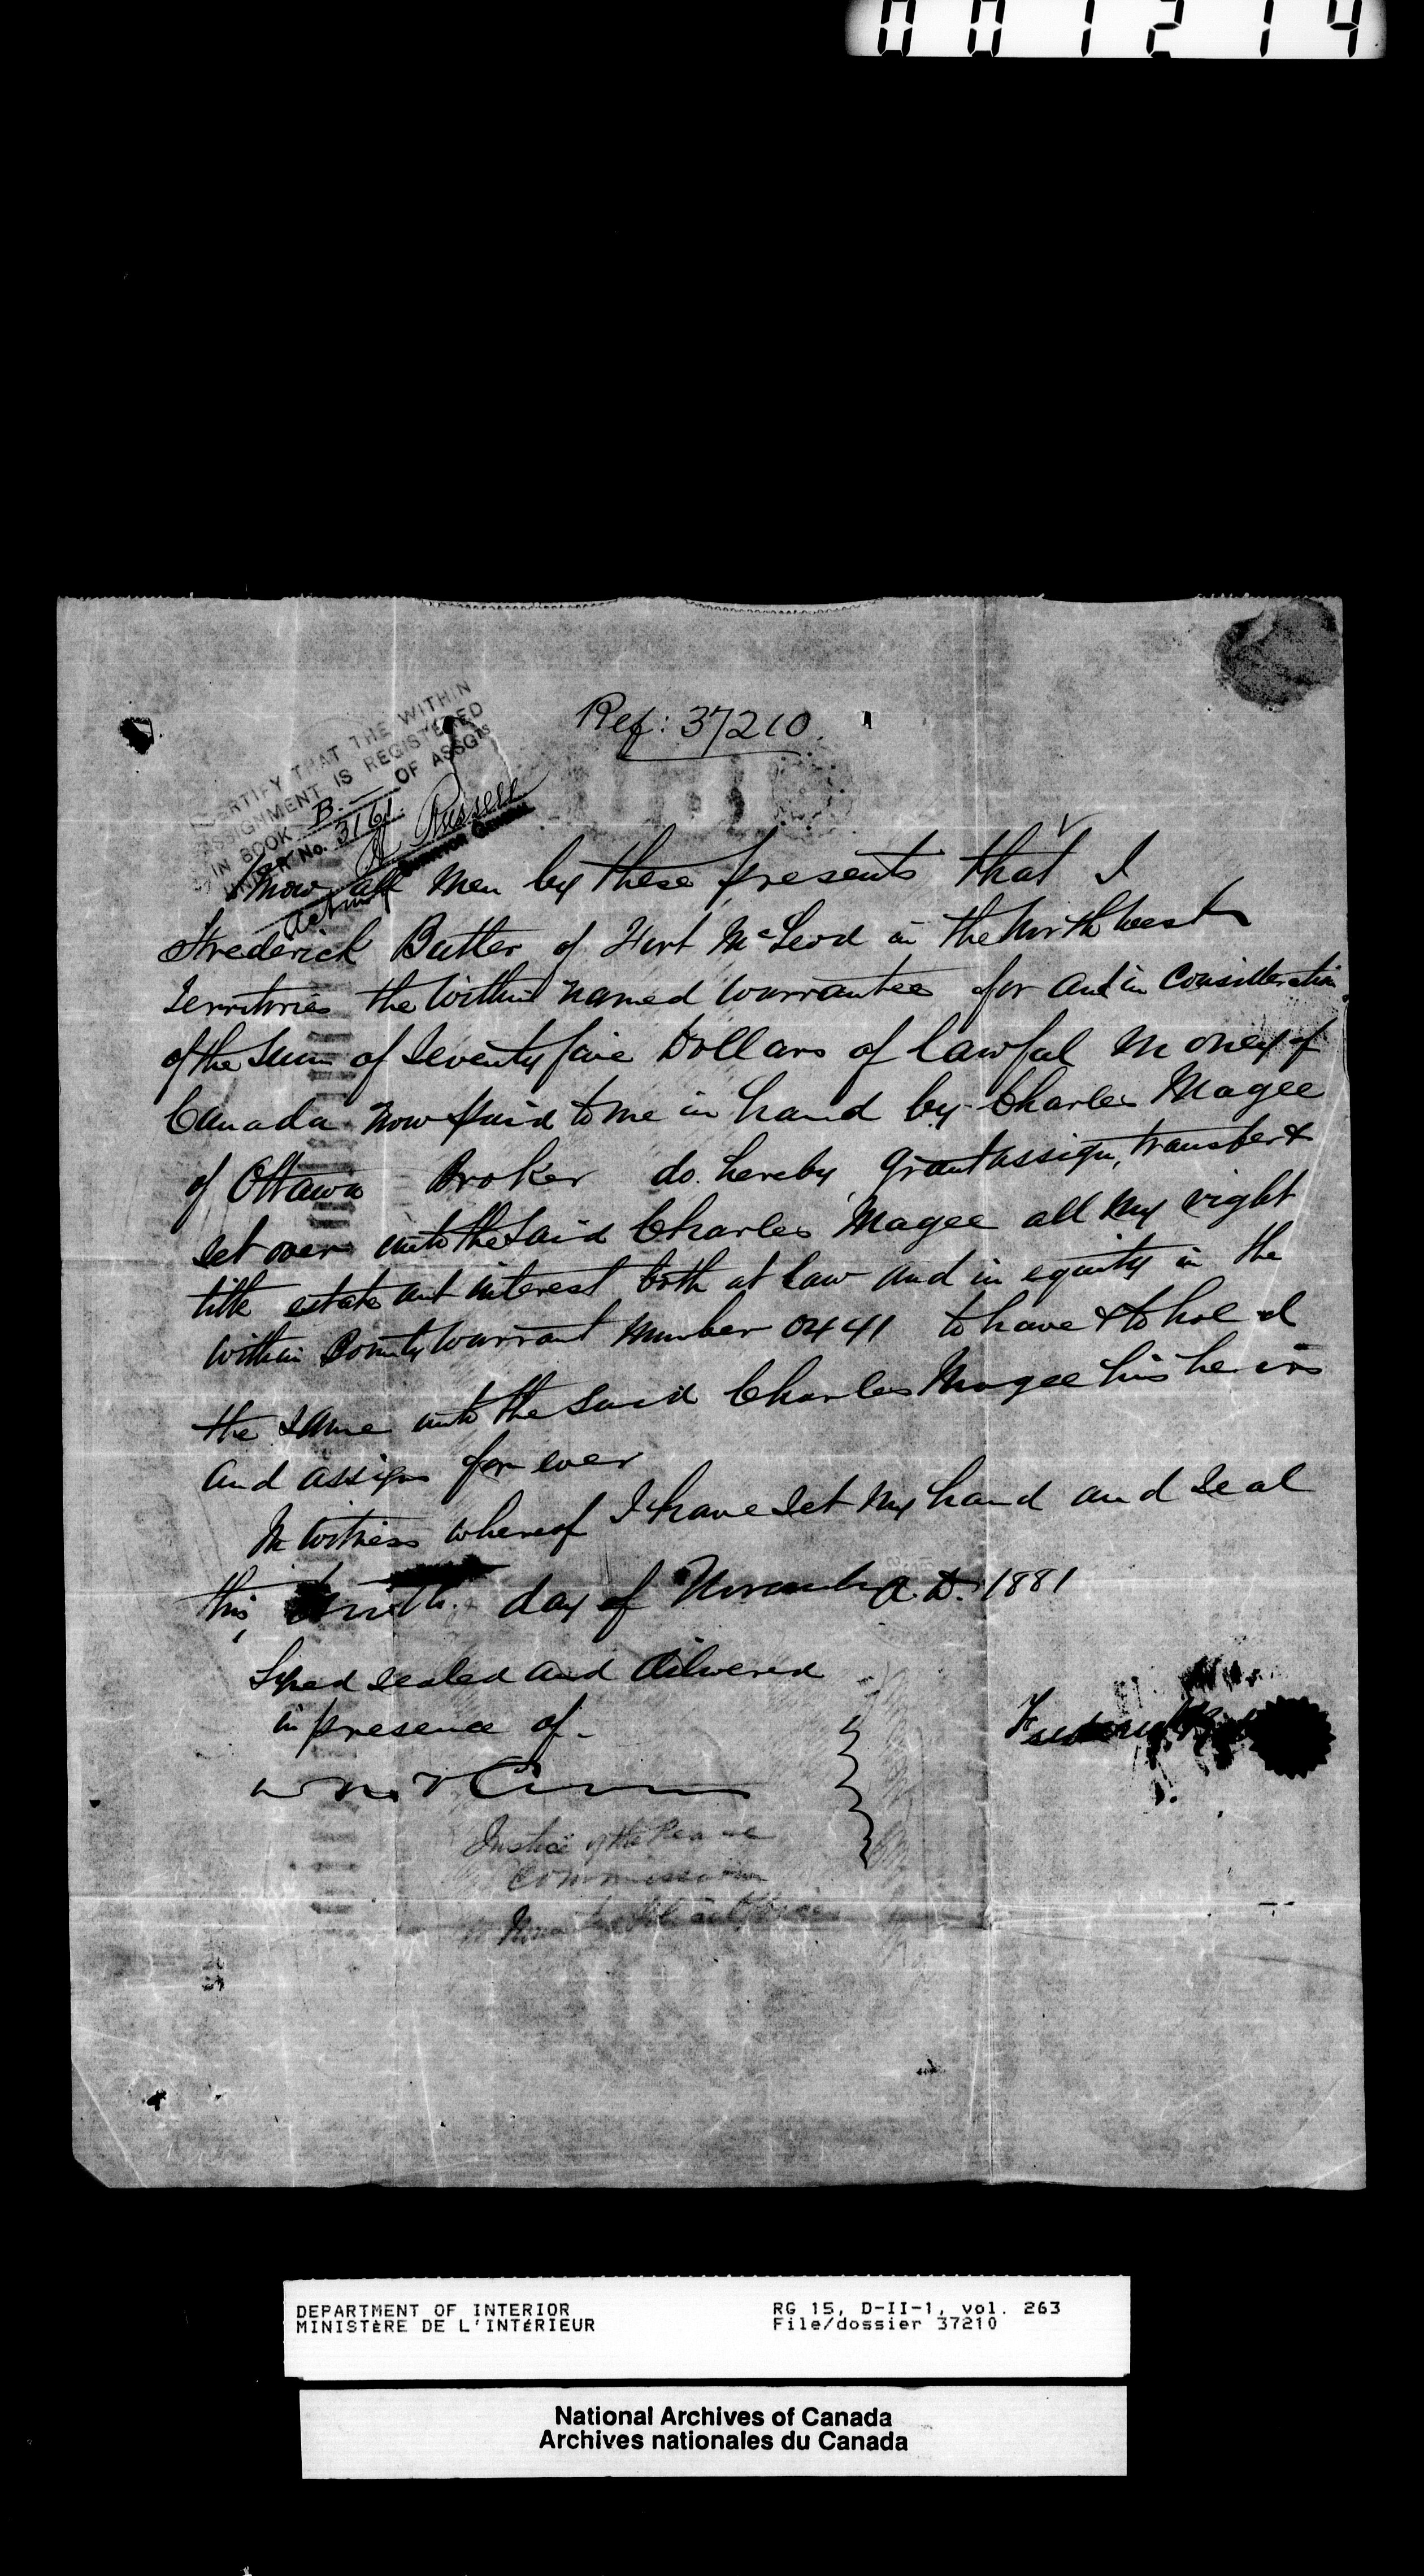 001214
Ref: 37210.
CERTIFY THAT THE WITHIN
ASSIGNMENT IS REGISTERED
IN BOOK B. OF ASSGTS
UNDER No. 3161.
A Russell
Acting SURVEYOR GENERAL
Know all Men by these presents that I
Frederick Butler of Fort McLeod in the North West
Territories the within named warrantee for and in Consideration
of the sum of Seventy five Dollars of lawful Money of
Canada now paid to me in hand by Charles Magee
of Ottawa Broker do hereby grant assign, transfer &
set over unto the Said Charles Magee all my right
title estate and interest both at law and in equity in the
within Bounty Warrant Number 0441 to have & to hold
the same unto the Said Charles Magee his heirs
and assigns for ever
In witness whereof I have set my hand and Seal
this day of November A.D. 1881
Signed sealed and delivered
in presence of
Frederick
Justice of the Peace
Commission
DEPARTMENT OF INTERIOR
MINISTÈRE DE L'INTÉRIEUR
RG 15, D-II-1, vol. 263
File/dossier 37210
National Archives of Canada
Archives nationales du Canada